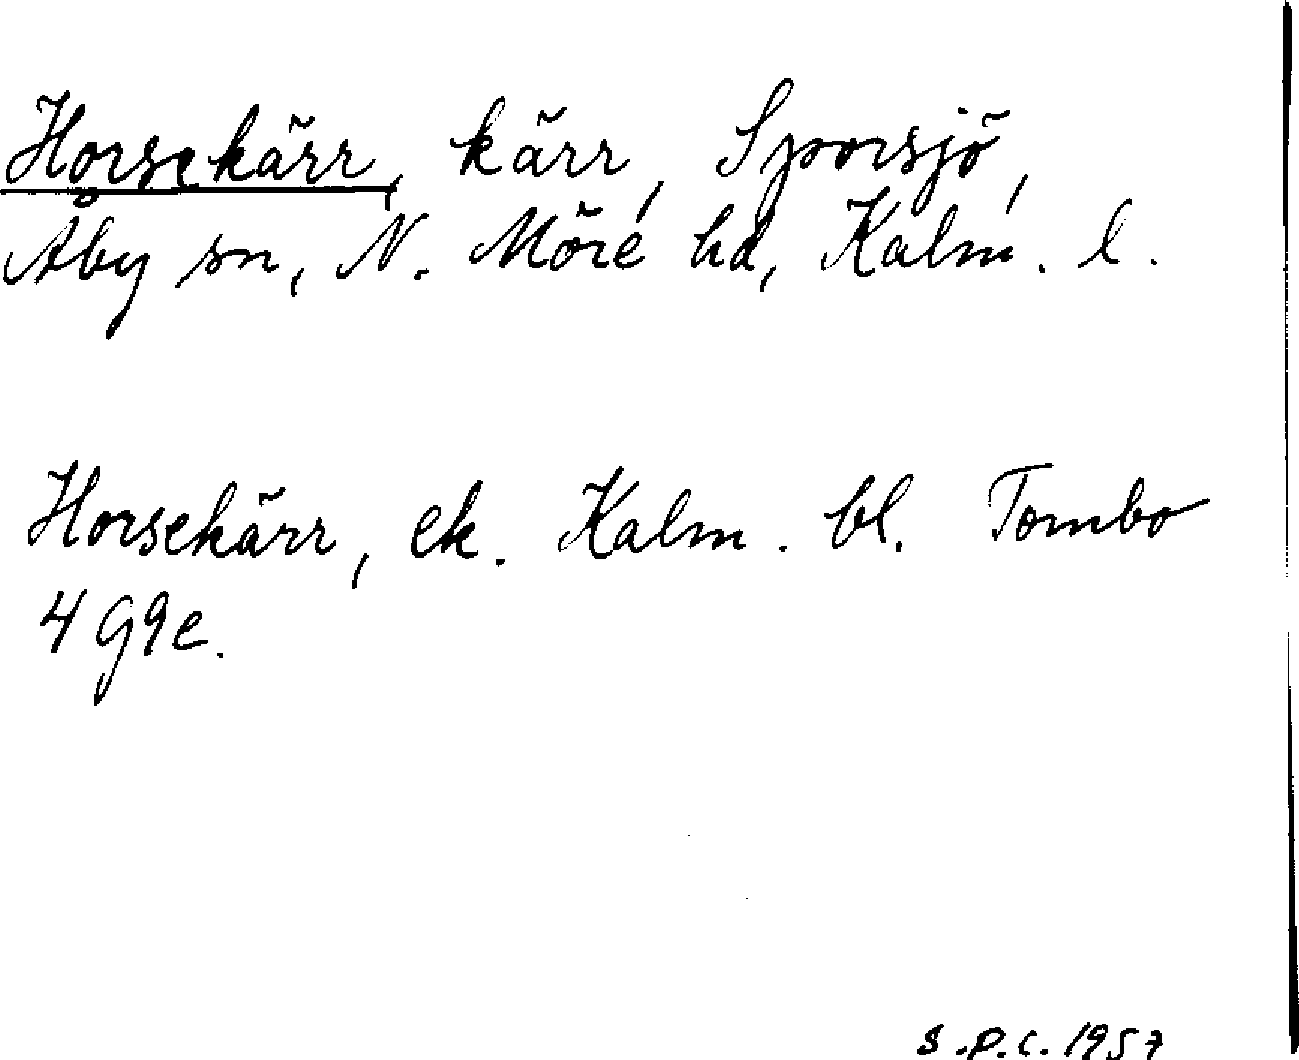 Horsekärr, kärr, Sporsjö,
Åby sn, N. Möre hd, Kalm. l.
Horsekärr, ek. Kalm. bl. Tombo
4 G9e.
S.P.C. 1957